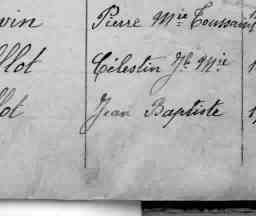 vin Pierre Mie Toussain
llot Célestin Jh Mie 1
lot Jean Baptiste 1